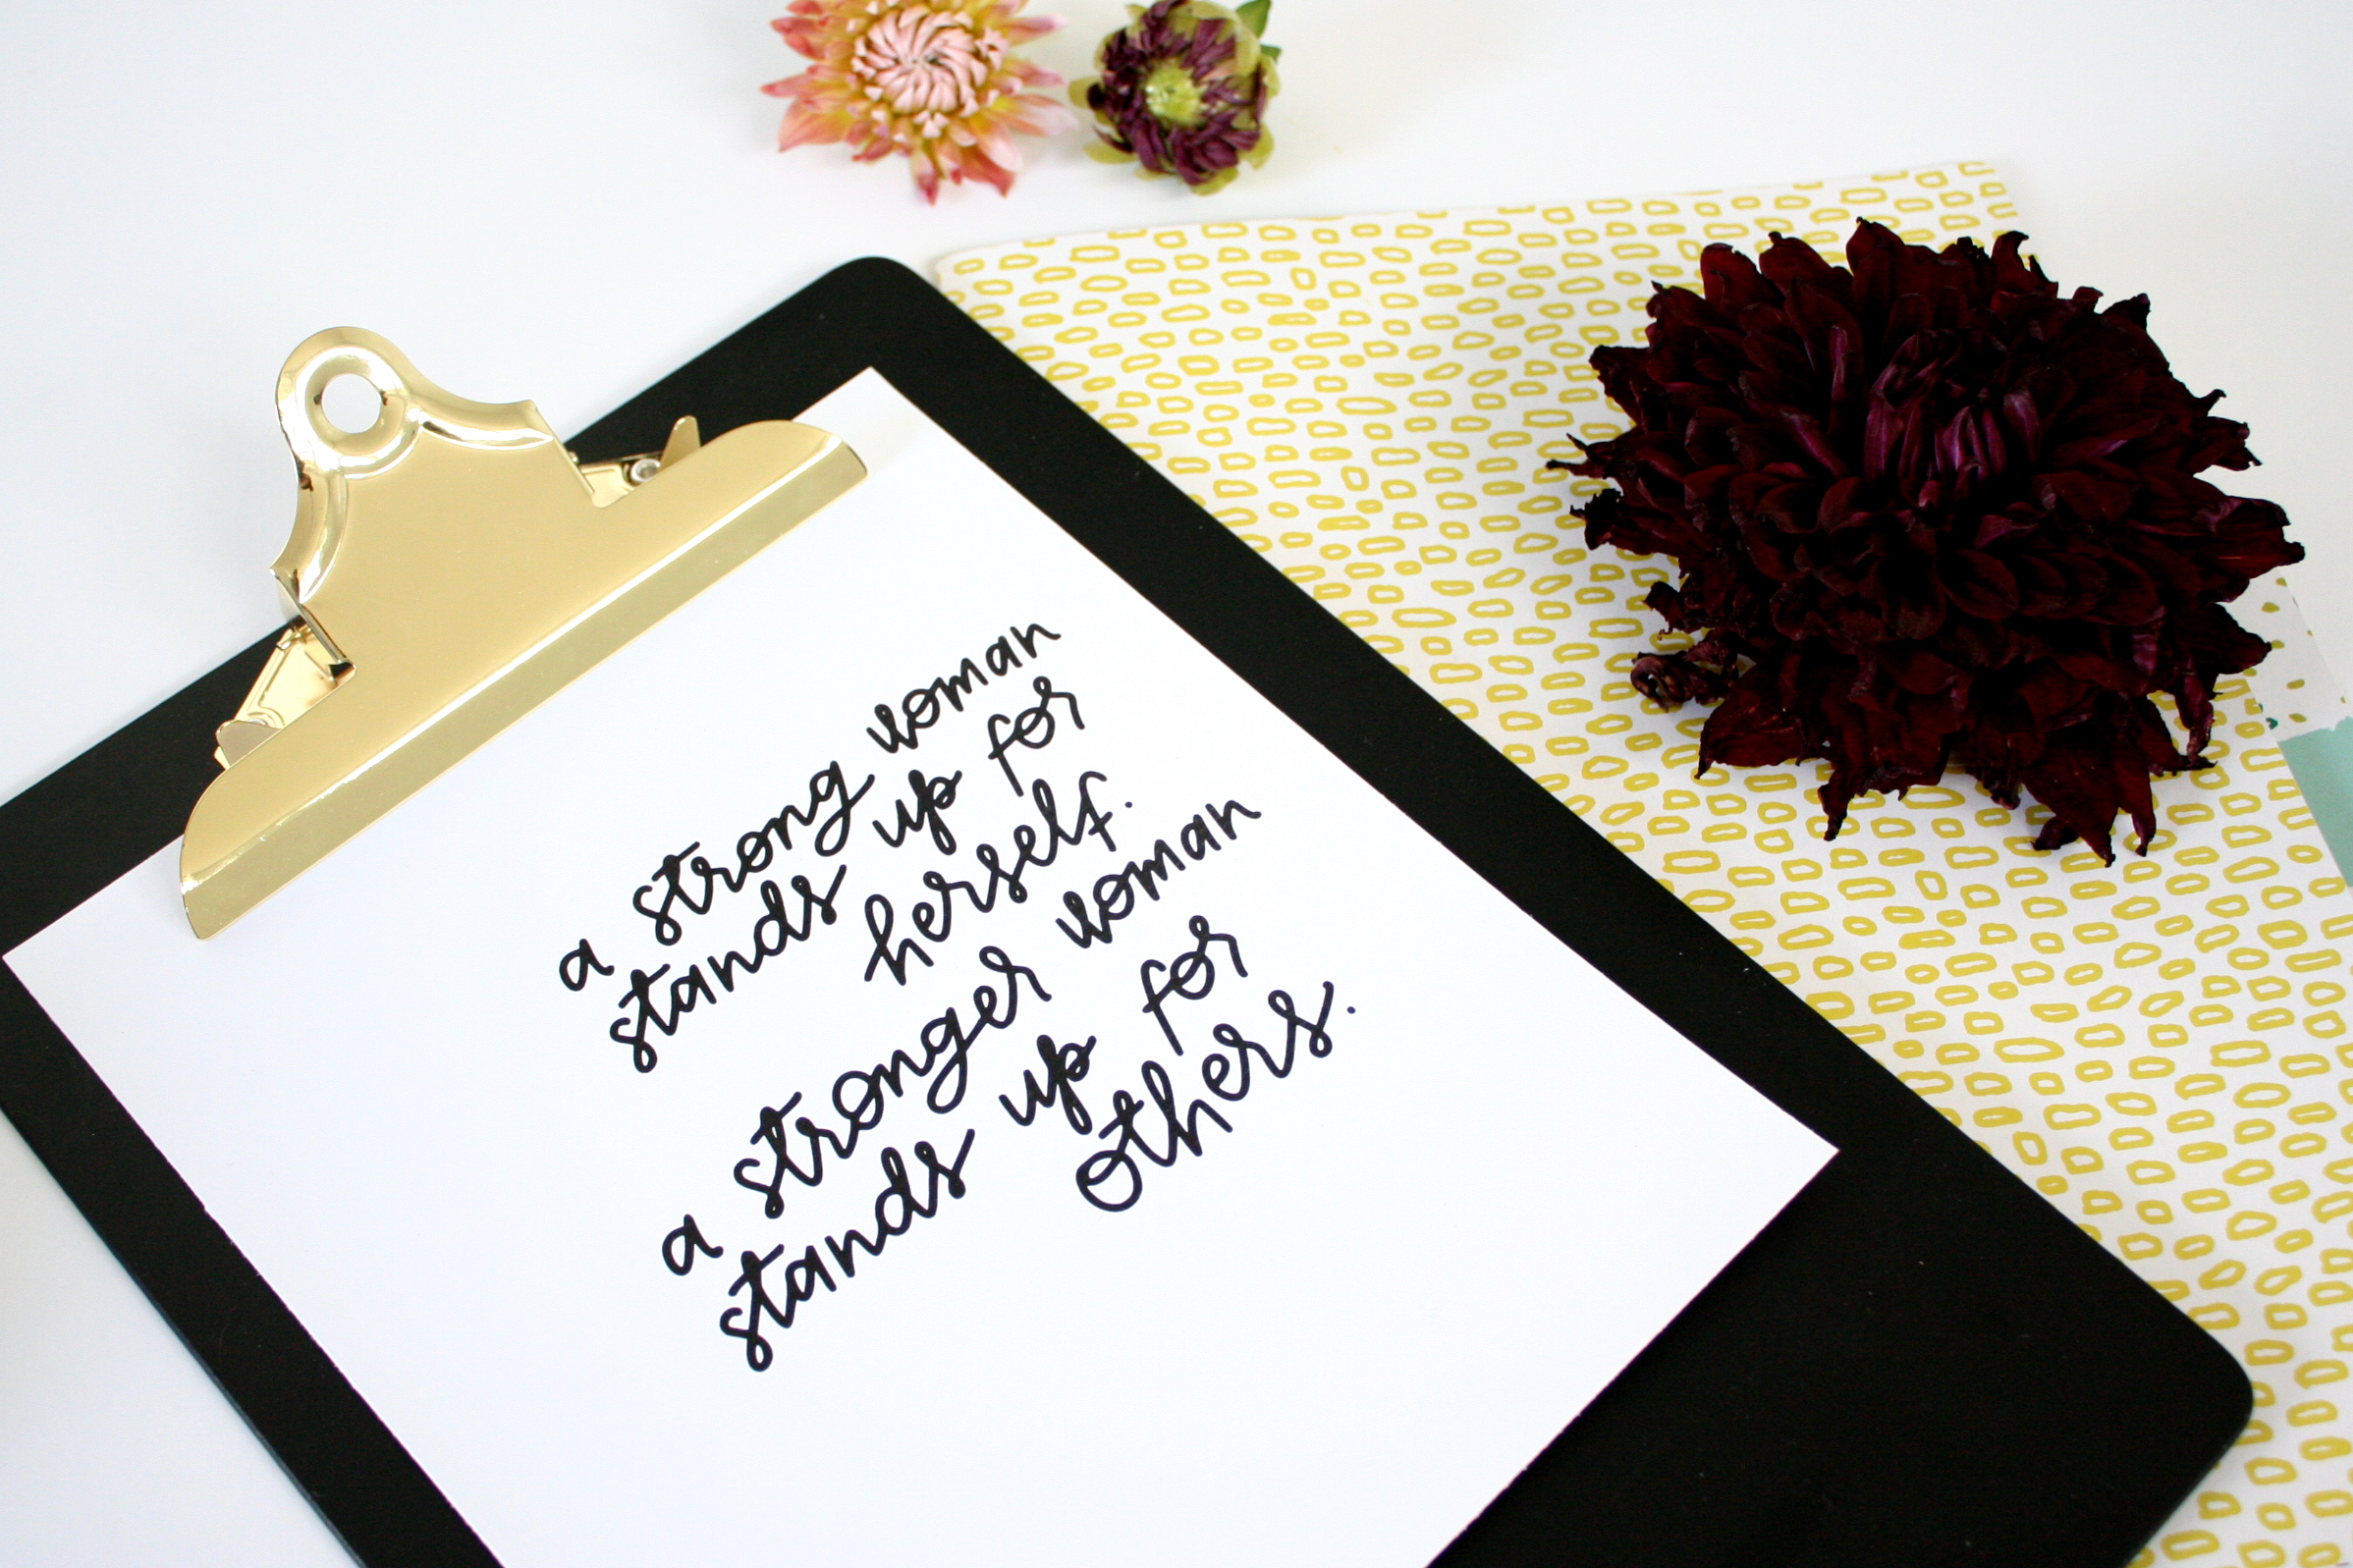 a strong woman
stands up for
herself.
a stronger woman
stands up for
others.